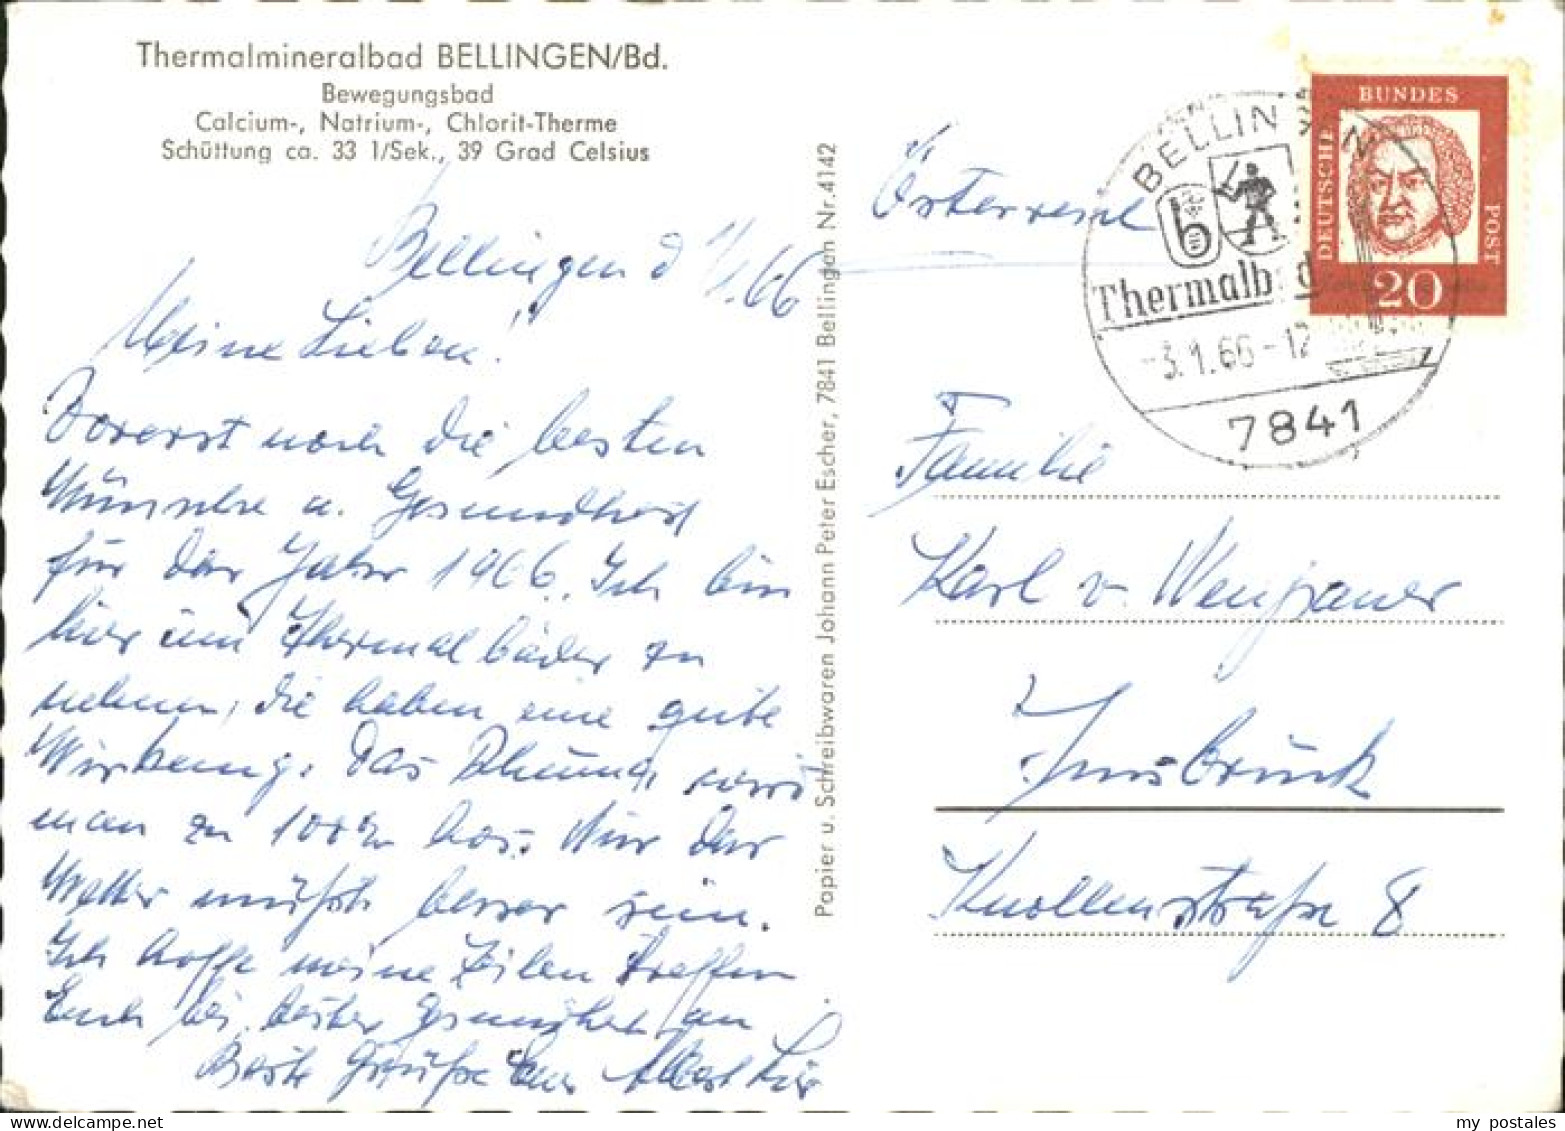 Thermalmineralbad BELLINGEN/Bd.
Bewegungsbad
Calcium-, Natrium-, Chlorit-Therme
Schüttung ca. 33 l/Sek., 39 Grad Celsius
Bellingen d 1/1.66
Meine Lieben!
Vorerst noch die besten
Wünsche u. Gesundheit
für das Jahr 1966. Ich bin
hier um Thermalbäder zu
nehmen, die haben eine gute
Wirkung. Das Rheuma wird
man zu 100% los. Nur das
Wetter müßte besser sein.
Ich hoffe meine Zeilen treffen
Euch bei bester Gesundheit an
Beste Grüße Euer Albert
Papier u. Schreibwaren Johann Peter Escher, 7841 Bellingen Nr. 4142
Österreich
BELLINGEN
b
Thermalbad
-3.1.66-12
7841
DEUTSCHE
BUNDES
POST
20
Familie
Karl v.
Innsbruck
Knollerstraße 8
my postales